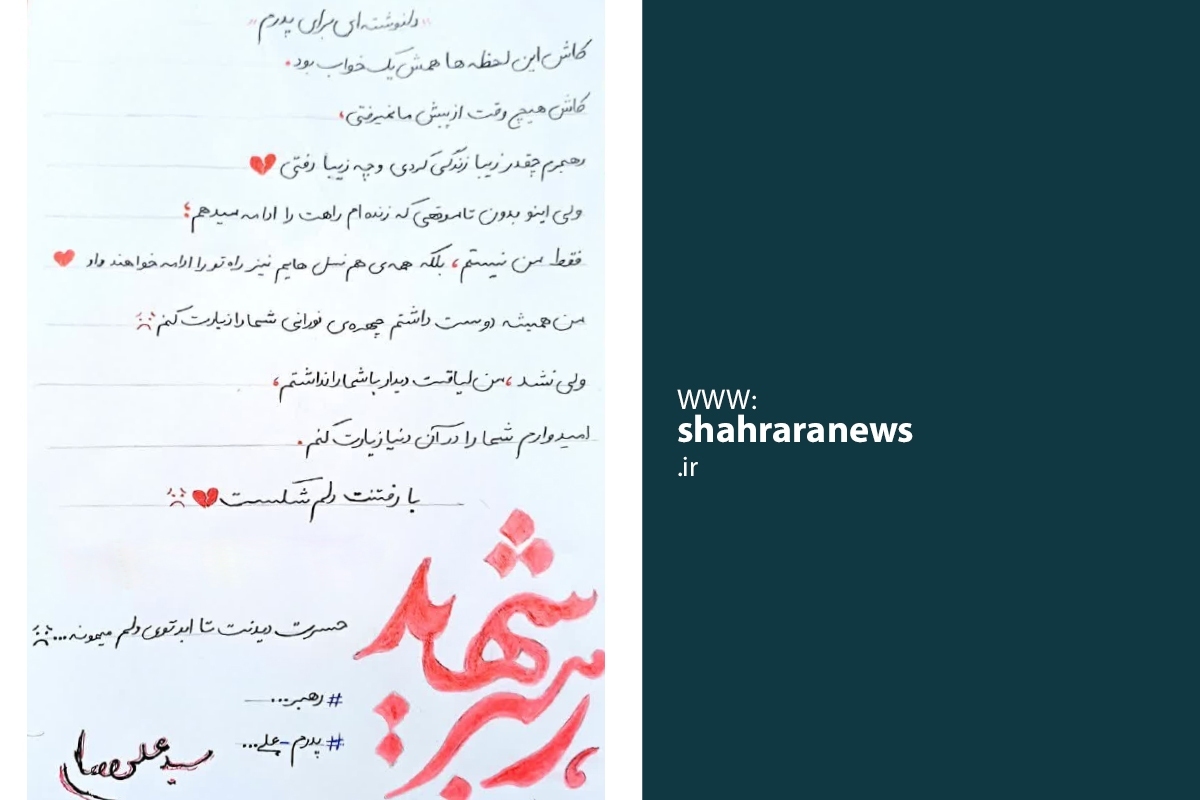 "دلنوشته‌ای برای پدرم"
کاش این لحظه ها همش یک خواب بود.
کاش هیچ وقت از پیش ما نمیرفتی،
رهبرم چقدر زیبا زندگی کردی و چه زیبا رفتی
ولی اینو بدون تا موقعی که زنده ام راهت را ادامه میدهم؛
فقط من نیستم، بلکه همه‌ی هم نسل هایم نیز راه تو را ادامه خواهند داد
من همیشه دوست داشتم چهره‌ی نورانی شما را زیارت کنم
ولی نشد، من لیاقت دیدار با شما را نداشتم،
امیدوارم شما را در آن دنیا زیارت کنم.
با رفتنت دلم شکست
رهبر شهید
حسرت دیدنت تا ابد توی دلم میمونه...
#رهبر...
#پدرم-علی...
سید علی
WWW:
shahraranews
.ir